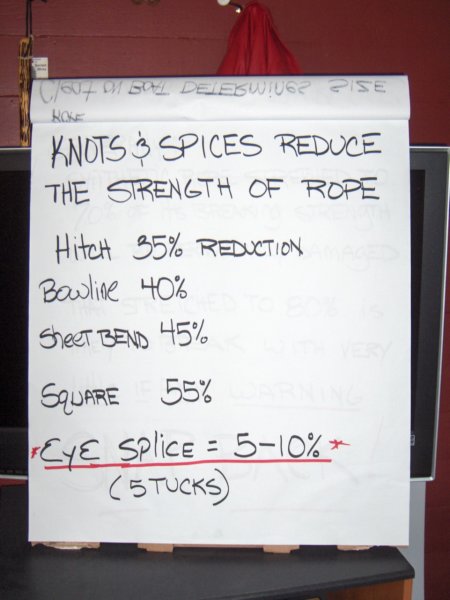 KNOTS & SPICES REDUCE
THE STRENGTH OF ROPE
Hitch 35% REDUCTION
Bowline 40%
Sheet BEND 45%
SQUARE 55%
*EyE SPlICE = 5-10%*
(5 TUCKS)